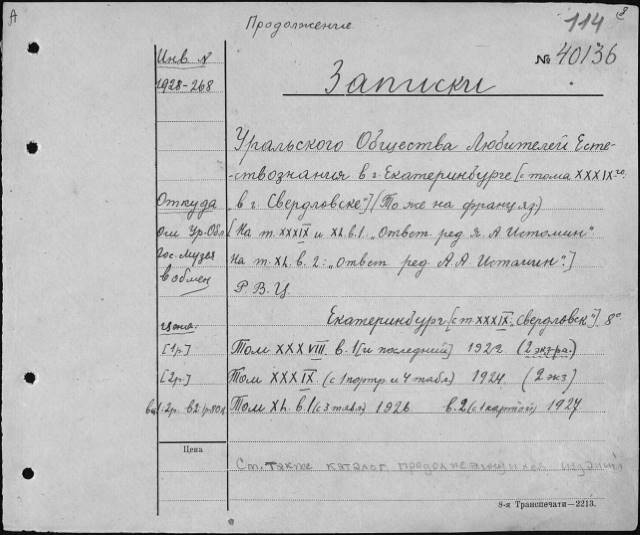 А
Продолжение
114
8
№ 40136
Инв №
1928-268
Записки
Уральского Общества Любителей Есте-
-ствознания в г. Екатеринбурге [с тома XXXIXго
Откуда
в г. Свердловске"] (То же на француз)
от Ур. Обл
[На т. XXXIX и XL в. 1. „Ответ. ред Я. А Истомин".
гос. музея
в обмен
На т. XL в. 2: „Ответ ред А. А. Истомин".]
Р. В. Ц.
Екатеринбург [с т. XXXIX „Свердловск"]. 8°
Цена:
[1р.] Том XXXVIII в. 1 [и последний] 1922 (2 экз.)
[2р.] Том XXXIX (с 1 портр и 4 табл) 1924. (2 экз)
в. 1. 2р. в 2. 1р. 80к Том XL в. 1 (с 3 табл) 1926 в. 2 (с 1 картой) 1927
Цена
См. также каталог продолжающихся изданий
8-я Транспечати—2213.